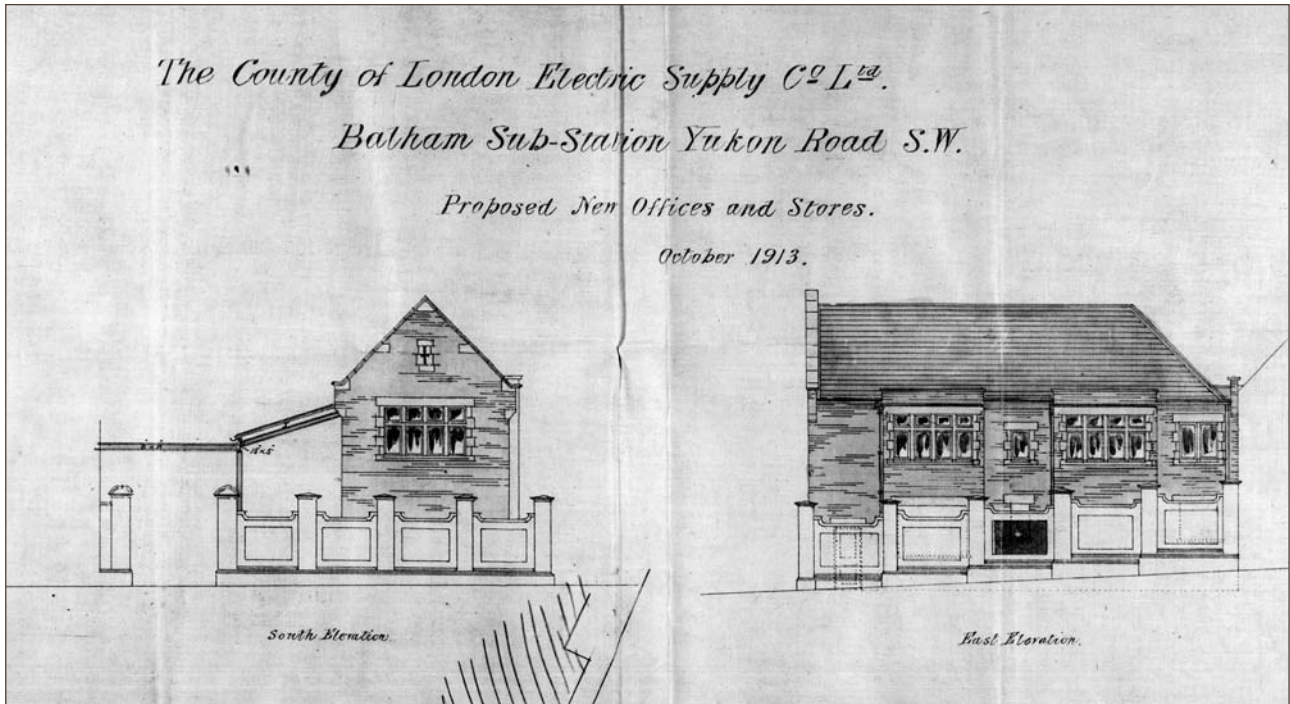 The County of London Electric Supply Co Ltd.
Balham Sub-Station Yukon Road S.W.
Proposed New Offices and Stores.
October 1913.
South Elevation.
East Elevation.